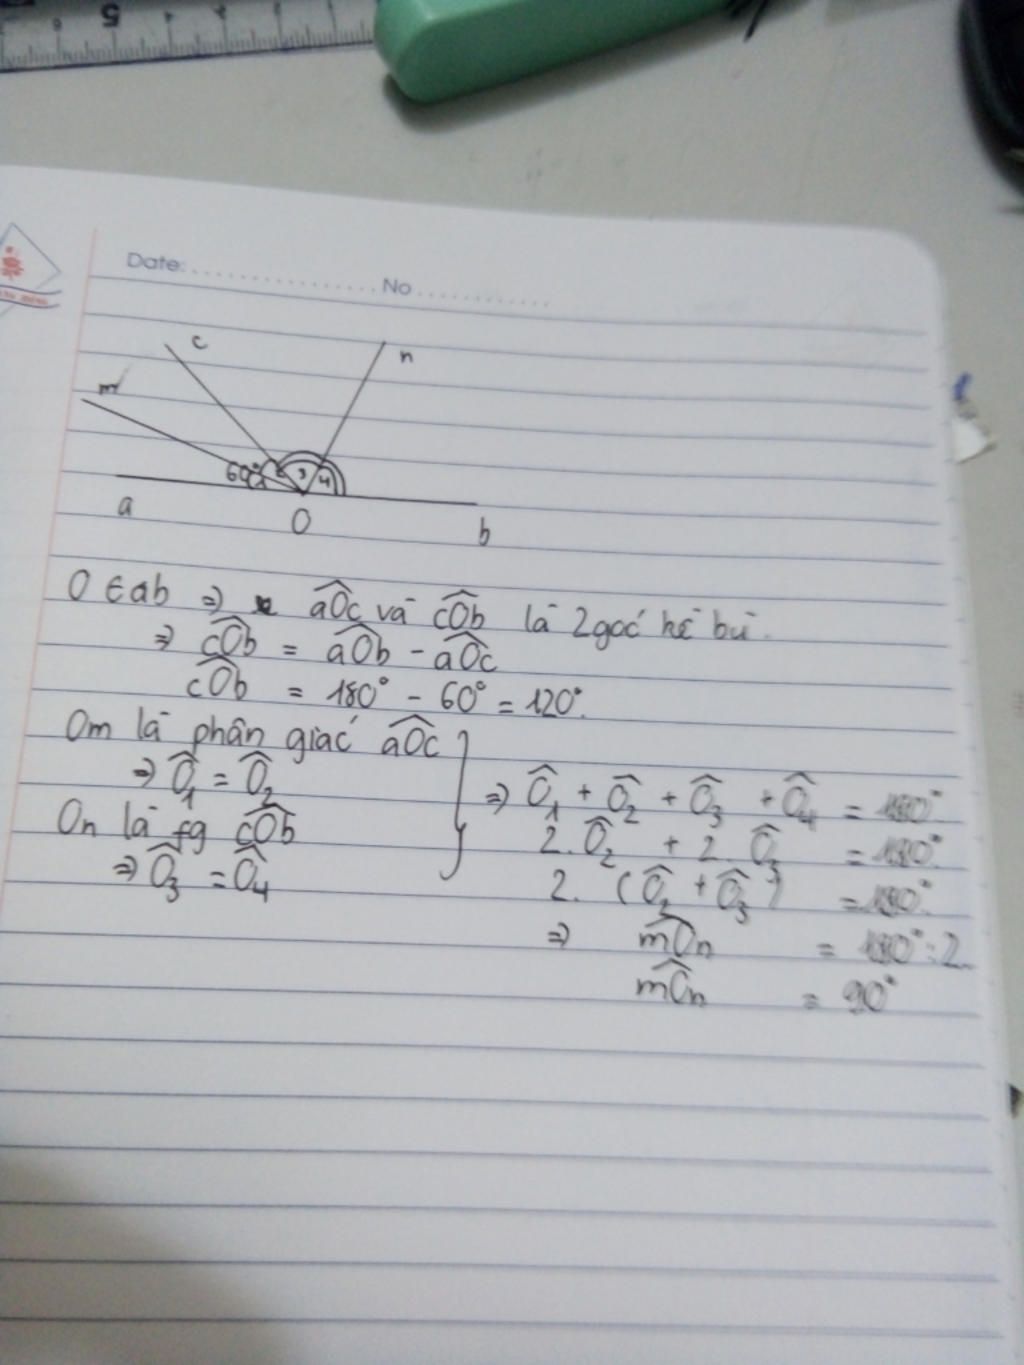 5
Date: ........................ No ..............
c
n
m
60°
2
3
4
a
O
b
O ∈ ab ⇒ aOc và cOb là 2 góc kề bù.
⇒ cOb = aOb - aOc
cOb = 180° - 60° = 120°.
Om là phân giác aOc
⇒ O1 = O2
On là fg cOb
⇒ O3 = O4
⇒ O1 + O2 + O3 + O4 = 180°
2. O2 + 2. O3 = 180°
2. (O2 + O3) = 180°
⇒ mOn = 180° : 2
mOn = 90°